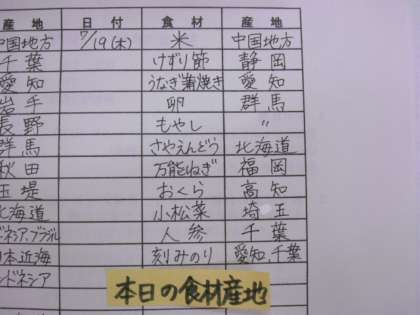 産 地 日 付 食 材 産 地
中国地方 7/19(木) 米 中国地方
千葉 けずり節 静岡
愛知 うなぎ蒲焼き 愛知
岩手 卵 群馬
長野 もやし 〃
群馬 さやえんどう 北海道
秋田 万能ねぎ 福岡
玉堤 おくら 高知
北海道 小松菜 埼玉
ドネシア、ブラジル 人参 千葉
日本近海 刻みのり 愛知、千葉
ンドネシア
本日の食材産地